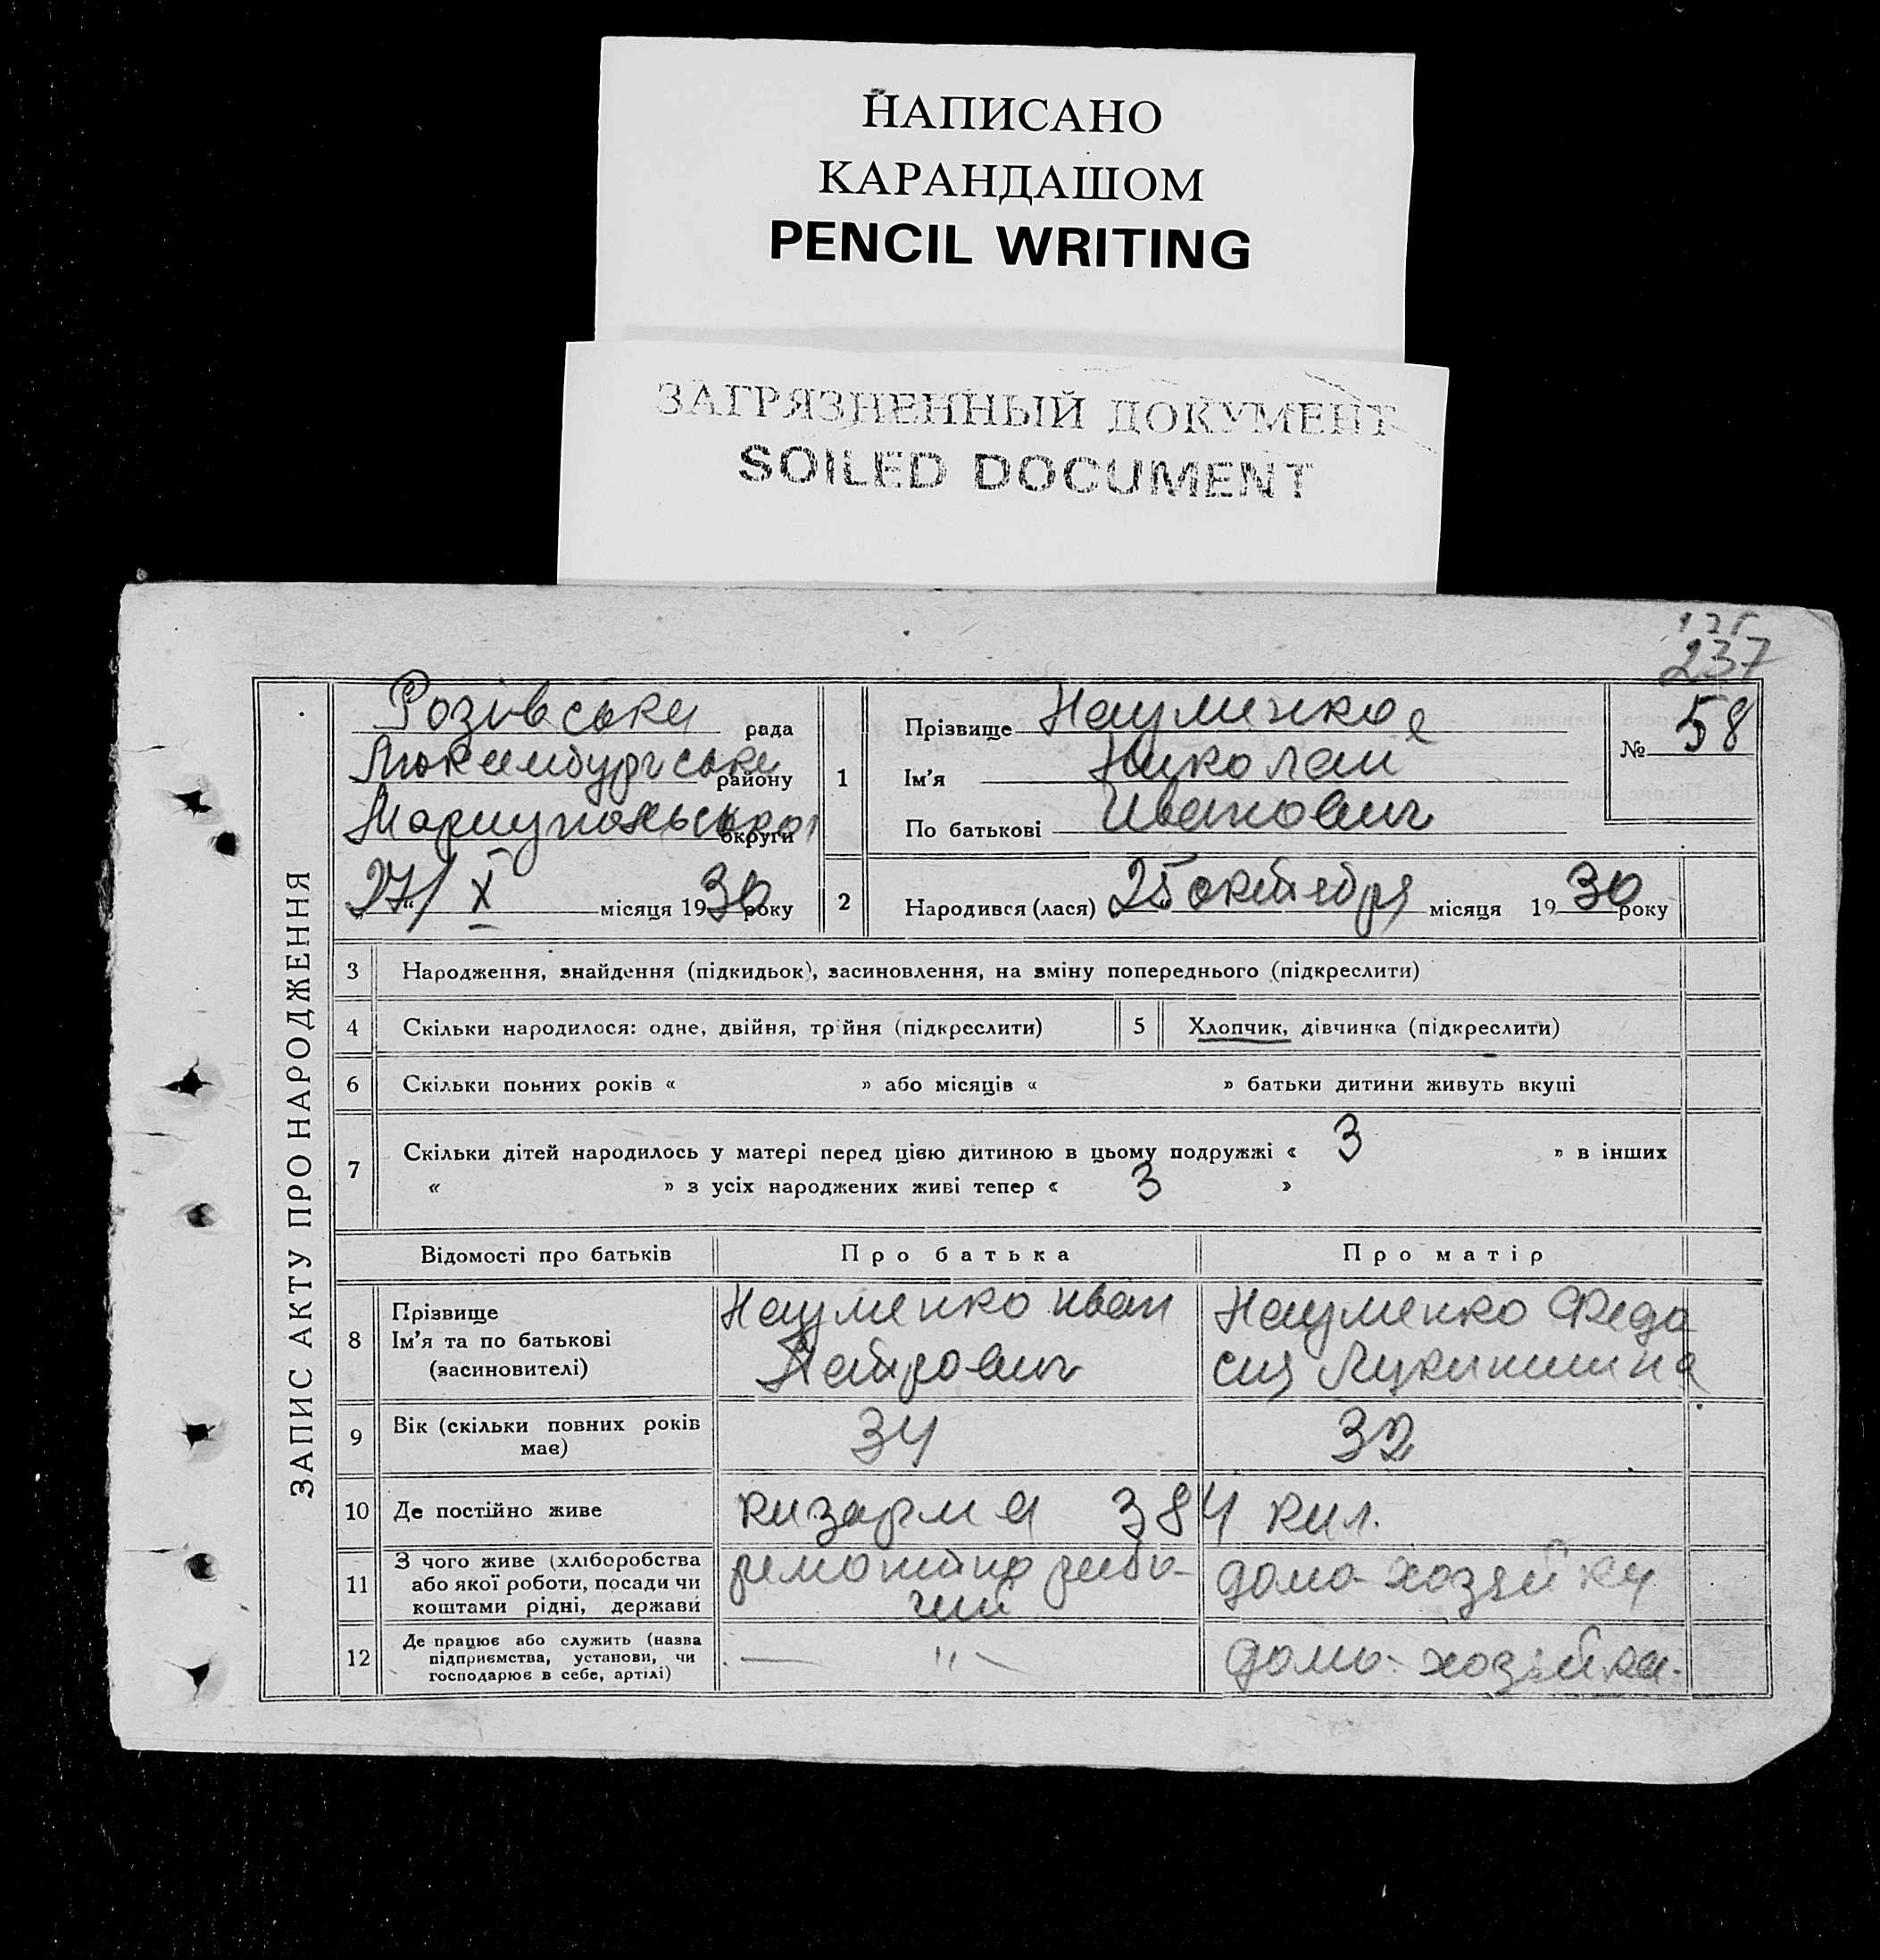 НАПИСАНО
КАРАНДАШОМ
PENCIL WRITING
ЗАГРЯЗНЕННЫЙ ДОКУМЕНТ
SOILED DOCUMENT
237
ЗАПИС АКТУ ПРО НАРОДЖЕННЯ
Розівська рада
Люксембургська району
Маріупольської округи
27/X місяця 1930 року
1
Прізвище Науменко
Ім’я Николай
По батькові Иванович
№ 58
2 Народився (лася) 25 октября місяця 1930 року
3 Народження, знайдення (підкидьок), засиновлення, на зміну попереднього (підкреслити)
4 Скільки народилося: одне, двійня, трійня (підкреслити) 5 Хлопчик, дівчинка (підкреслити)
6 Скільки повних років « » або місяців « » батьки дитини живуть вкупі
7 Скільки дітей народилось у матері перед цією дитиною в цьому подружжі « 3 » в інших
« » з усіх народжених живі тепер « 3 »
Відомості про батьків Про батька Про матір
8 Прізвище
Ім’я та по батькові
(засиновителі)
Науменко Иван
Петрович
Науменко Феда
сия
9 Вік (скільки повних років
має)
34 32
10 Де постійно живе казарма 384 кил.
11 З чого живе (хліборобства
або якої роботи, посади чи
коштами рідні, держави
ремонтно рабо-
чий
домо-хозяйка
12 Де працює або служить (назва
підприємства, установи, чи
господарює в себе, артілі)
— " —
домо-хозяйка.